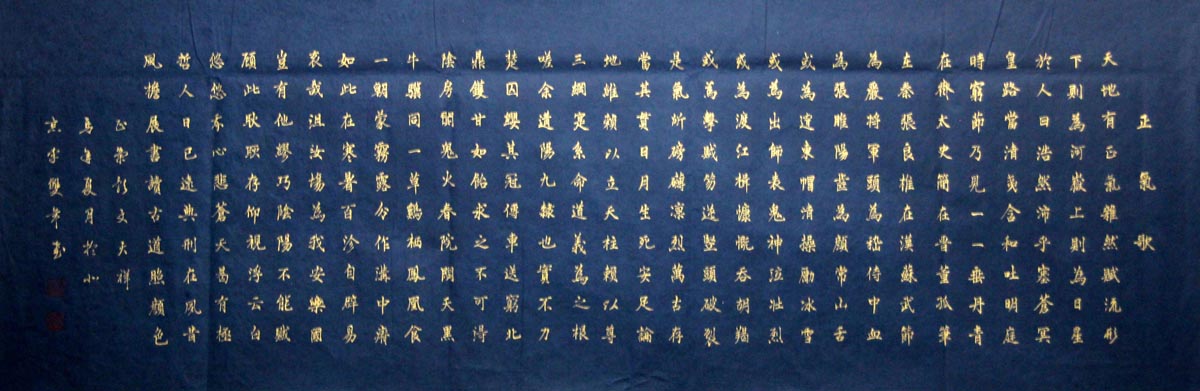 正氣歌
天地有正氣雜然賦流形
下則為河嶽上則為日星
於人曰浩然沛乎塞蒼冥
皇路當清夷含和吐明庭
時窮節乃見一一垂丹青
在齊太史簡在晉董狐筆
在秦張良椎在漢蘇武節
為嚴將軍頭為嵇侍中血
為張睢陽齒為顏常山舌
或為遼東帽清操勵冰雪
或為出師表鬼神泣壯烈
或為渡江楫慷慨吞胡羯
或為擊賊笏逆豎頭破裂
是氣所磅礴凛烈萬古存
當其貫日月生死安足論
地維賴以立天柱賴以尊
三綱實系命道義為之根
嗟余遘陽九隸也實不力
楚囚纓其冠傳車送窮北
鼎鑊甘如飴求之不可得
陰房闃鬼火春院閟天黑
牛驥同一草鷄栖鳳凰食
一朝蒙霧露分作溝中瘠
如此在寒暑百沴自辟易
哀哉沮洳場為我安樂國
豈有他繆巧陰陽不能賊
顧此耿耿存仰視浮云白
悠悠我心悲蒼天曷有極
哲人日已遠典刑在夙昔
風檐展書讀古道照顏色
正氣歌文天祥
年夏月於小